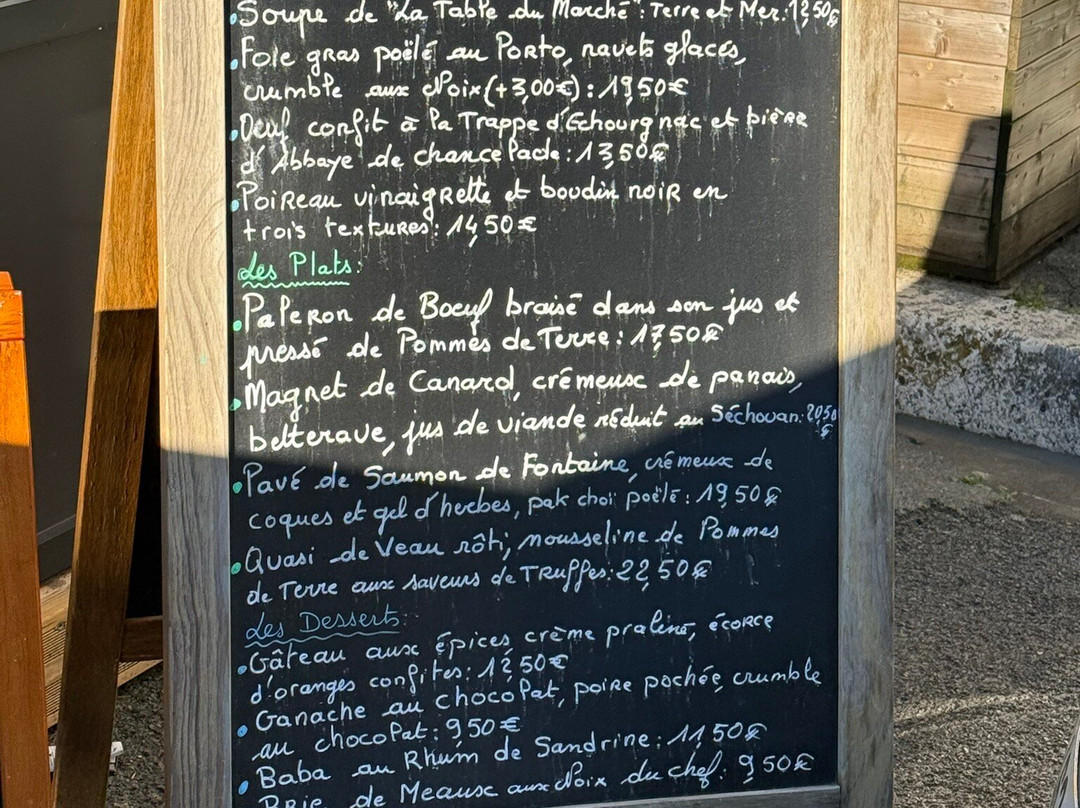 Soupe de "La Table du Marché": Terre et Mer: 12,50€
Foie gras poêlé au Porto, navets glacés,
crumble aux Noix (+3,00€) : 19,50€
Oeuf confit à la Trappe d'Echourgnac et bière
d'Abbaye de chancelade : 13,50€
Poireau vinaigrette et boudin noir en
trois textures : 14,50€
Les Plats :
Paleron de Boeuf braisé dans son jus et
pressé de Pommes de Terre : 17,50€
Magret de Canard, crémeux de panais,
betterave, jus de viande réduit au Séchouan: 20,50
€
Pavé de Saumon de Fontaine, crémeux de
coques et gel d'herbes, pak choï poêlé : 19,50€
Quasi de Veau rôti, mousseline de Pommes
de Terre aux saveurs de Truffes: 22,50€
Les Desserts :
Gâteau aux épices, crème praliné, écorce
d'oranges confites : 12,50€
Ganache au chocolat, poire pochée, crumble
au chocolat : 9,50€
Baba au Rhum de Sandrine : 11,50€
Brie de Meaux aux Noix du chef : 9,50€